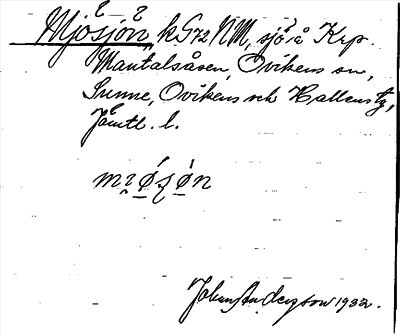 Mjösjön, k G72 NM, sjö å Krp.
Mantalsåsen, Ovikens sn,
Sunne, Ovikens och Hallens tg,
Jämtl. l.
mi̯ǿʂøn
Johan Andersson 1932.